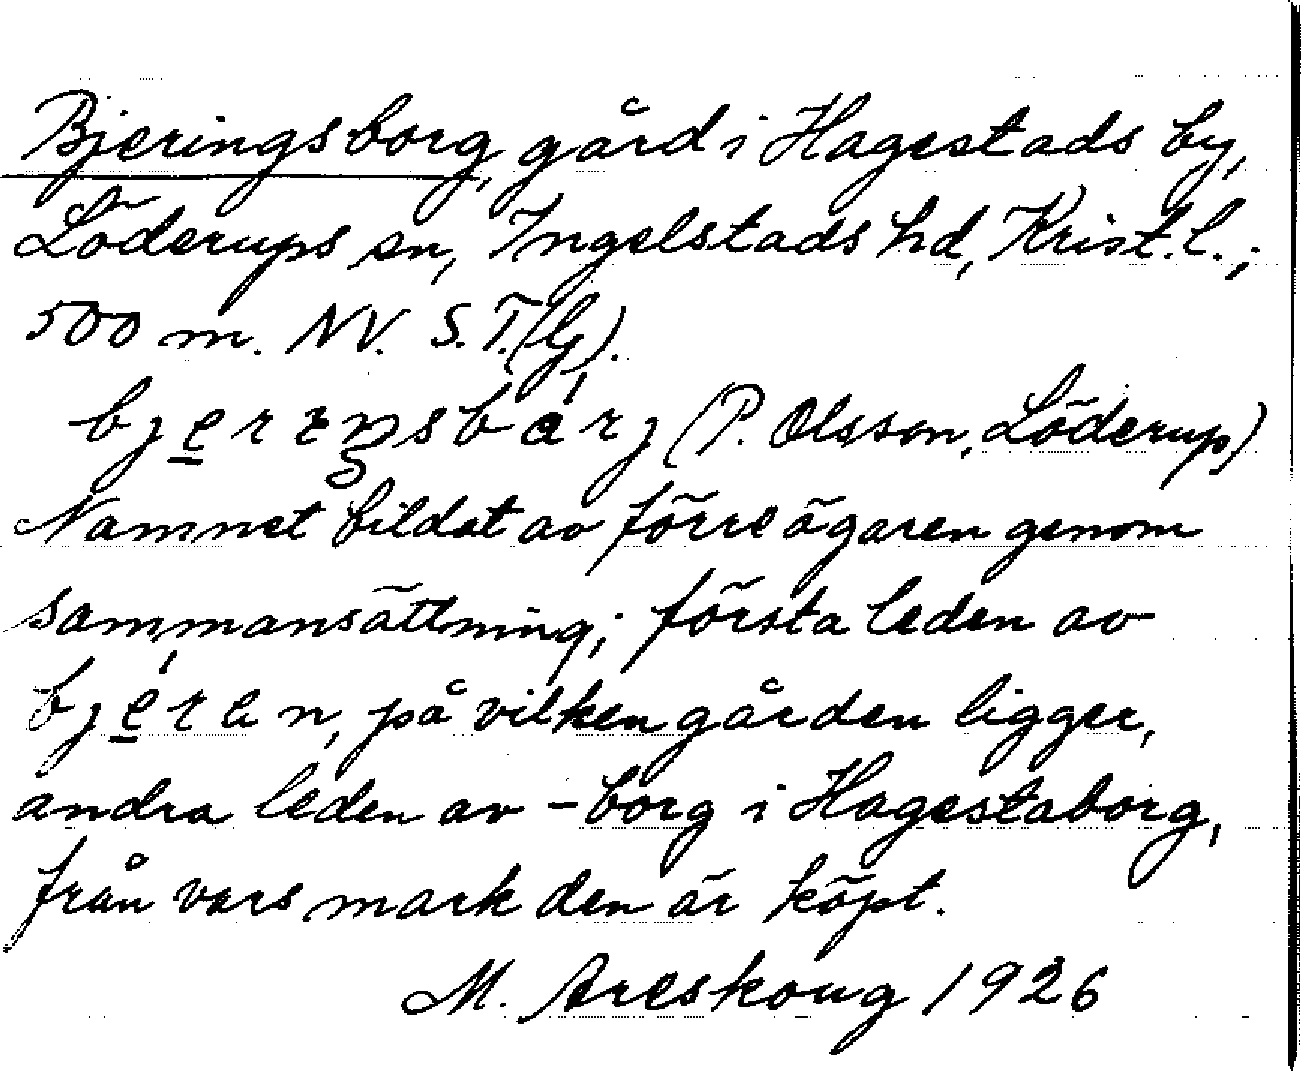 Bjeringsborg, gård i Hagestads by,
Löderups sn, Ingelstads hd, Krist. l.;
500 m. NV. S.T.(G).
bjerıŋsbárj (P. Olsson, Löderup)
Namnet bildat av förre ägaren genom
sammansättning; första leden av
bjéran, på vilken gården ligger,
andra leden av -borg i Hagestaborg,
från vars mark den är köpt.
M. Areskoug 1926